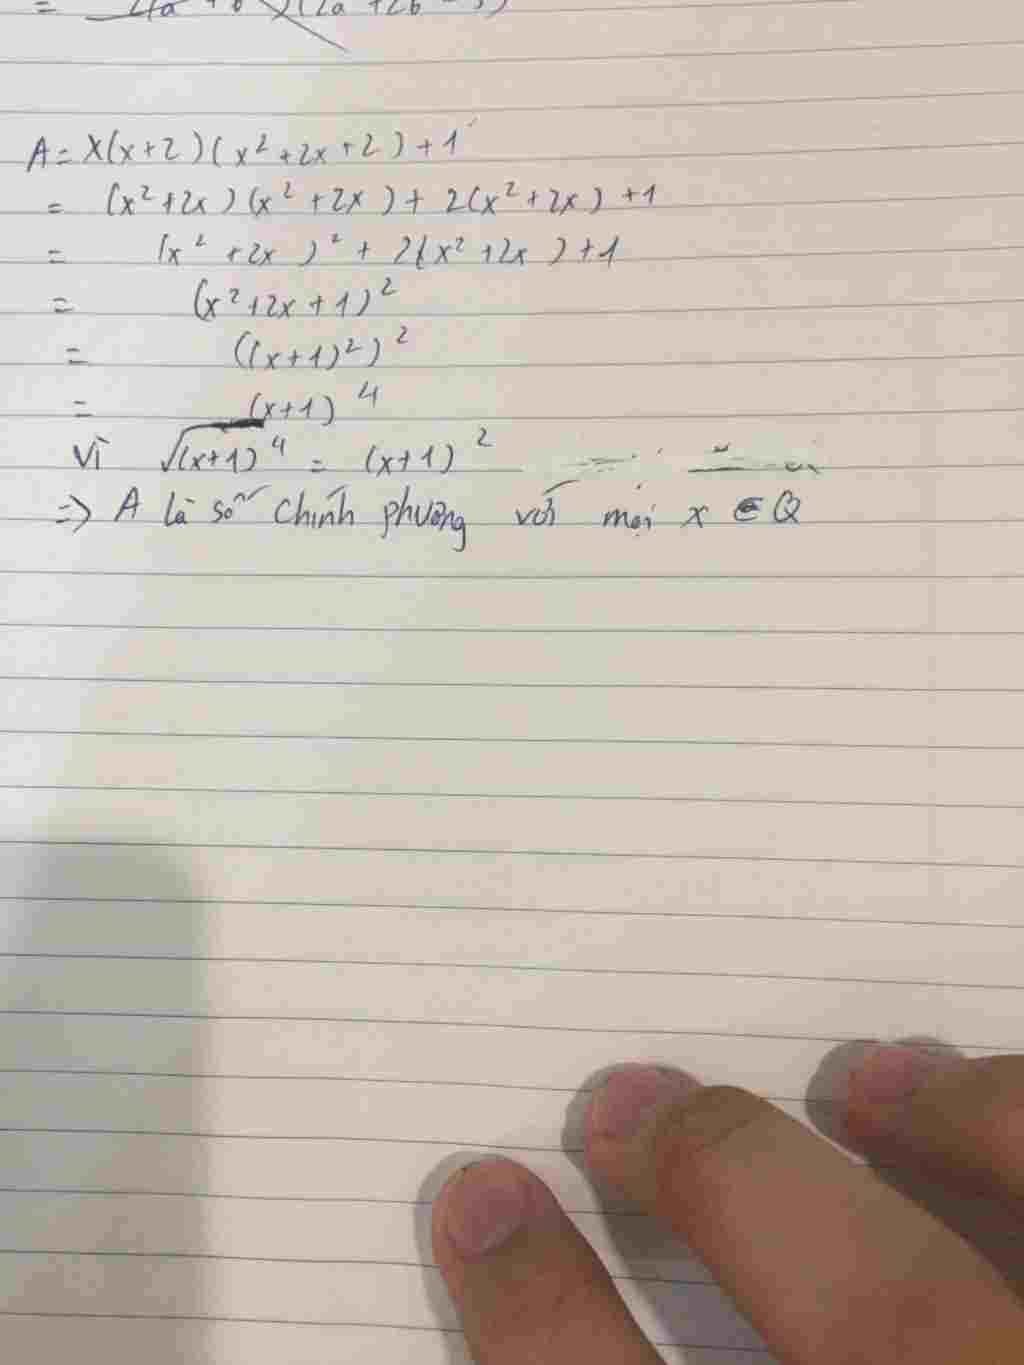 A = x(x+2)(x²+2x+2)+1
= (x²+2x)(x²+2x)+2(x²+2x)+1
= (x²+2x)²+2(x²+2x)+1
= (x²+2x+1)²
= ((x+1)²)²
= (x+1)⁴
Vì √(x+1)⁴ = (x+1)²
=> A là số chính phương với mọi x ∈ Q